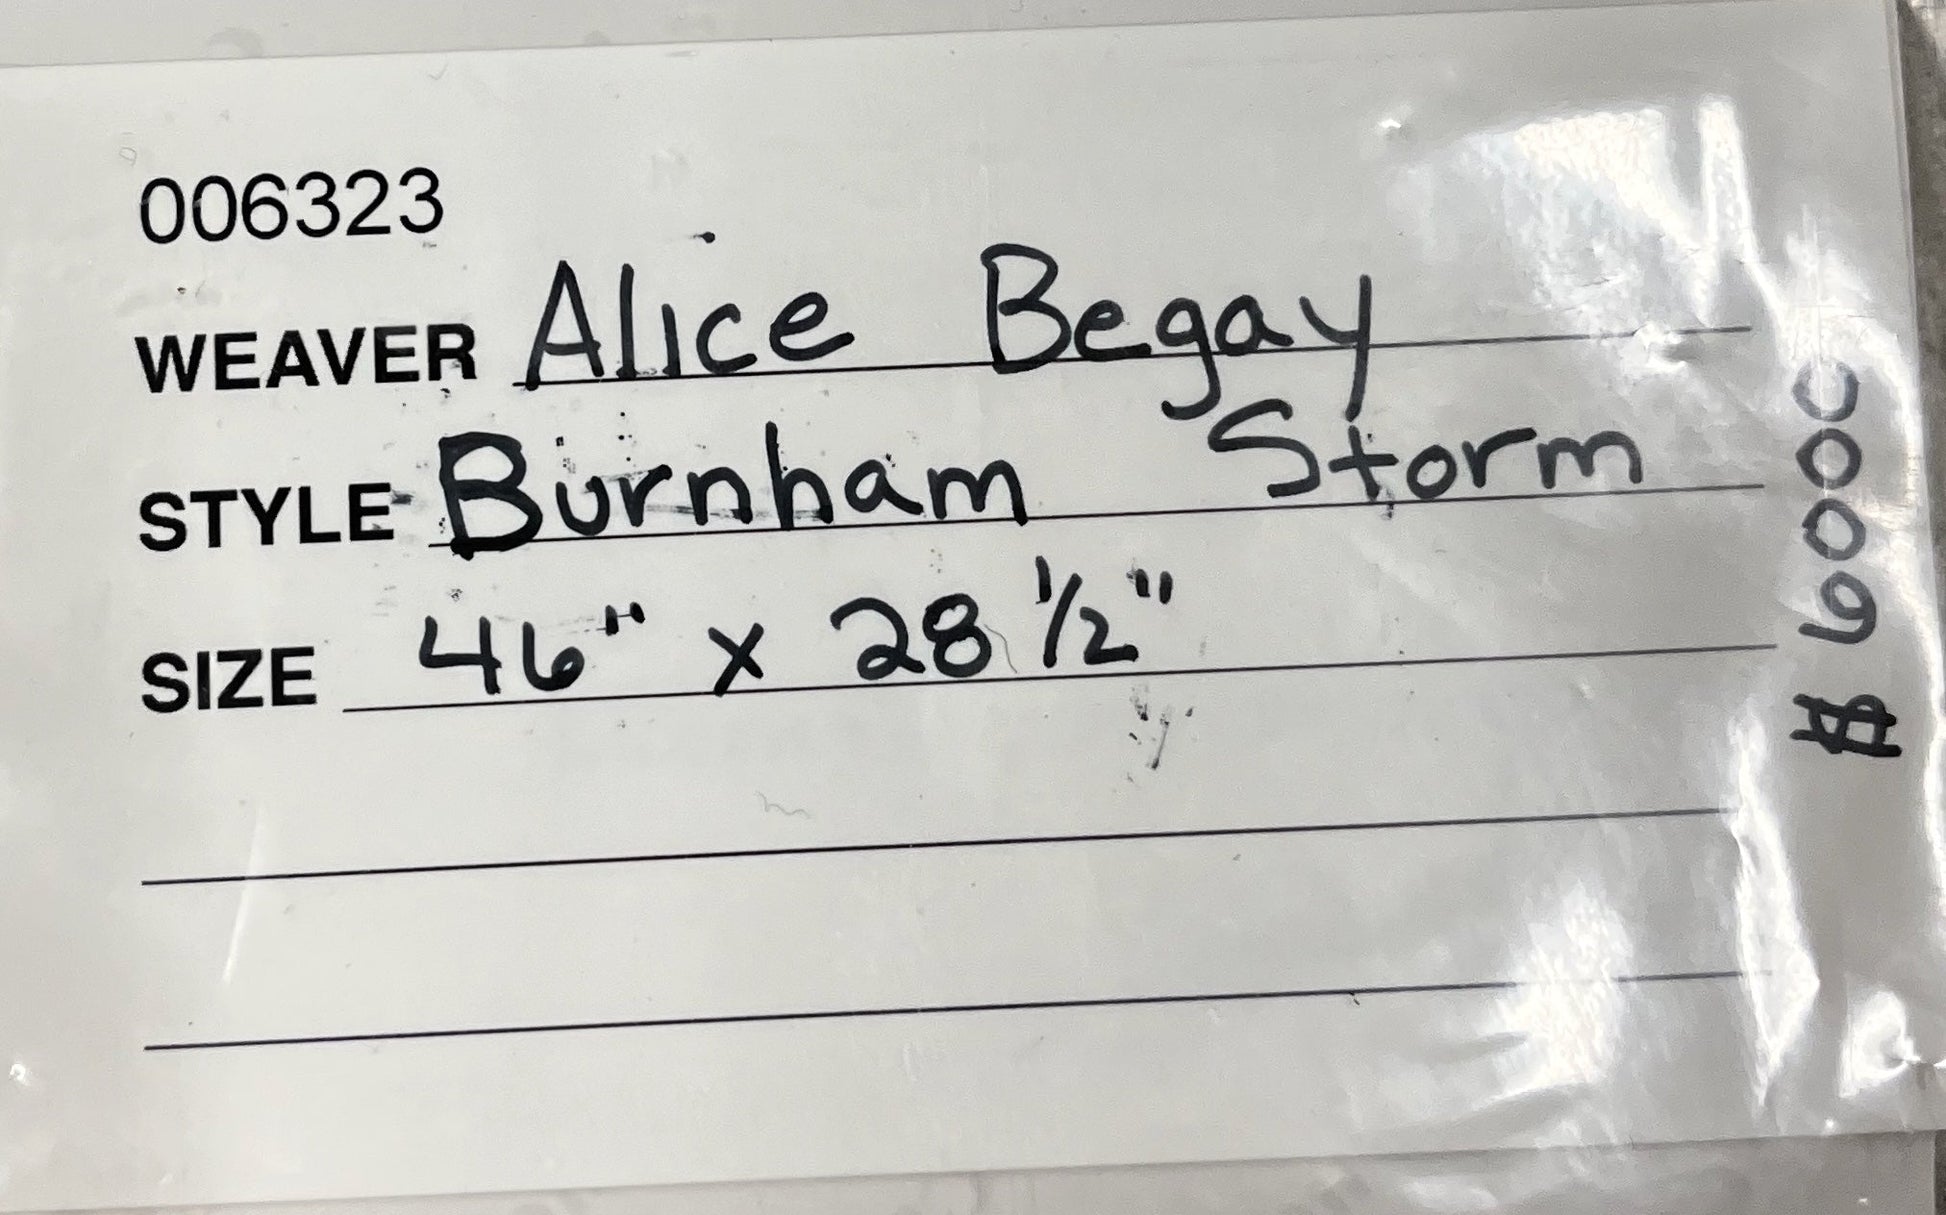 006323
WEAVER Alice Begay
STYLE Burnham Storm
SIZE 46" x 28 1/2"
$6000